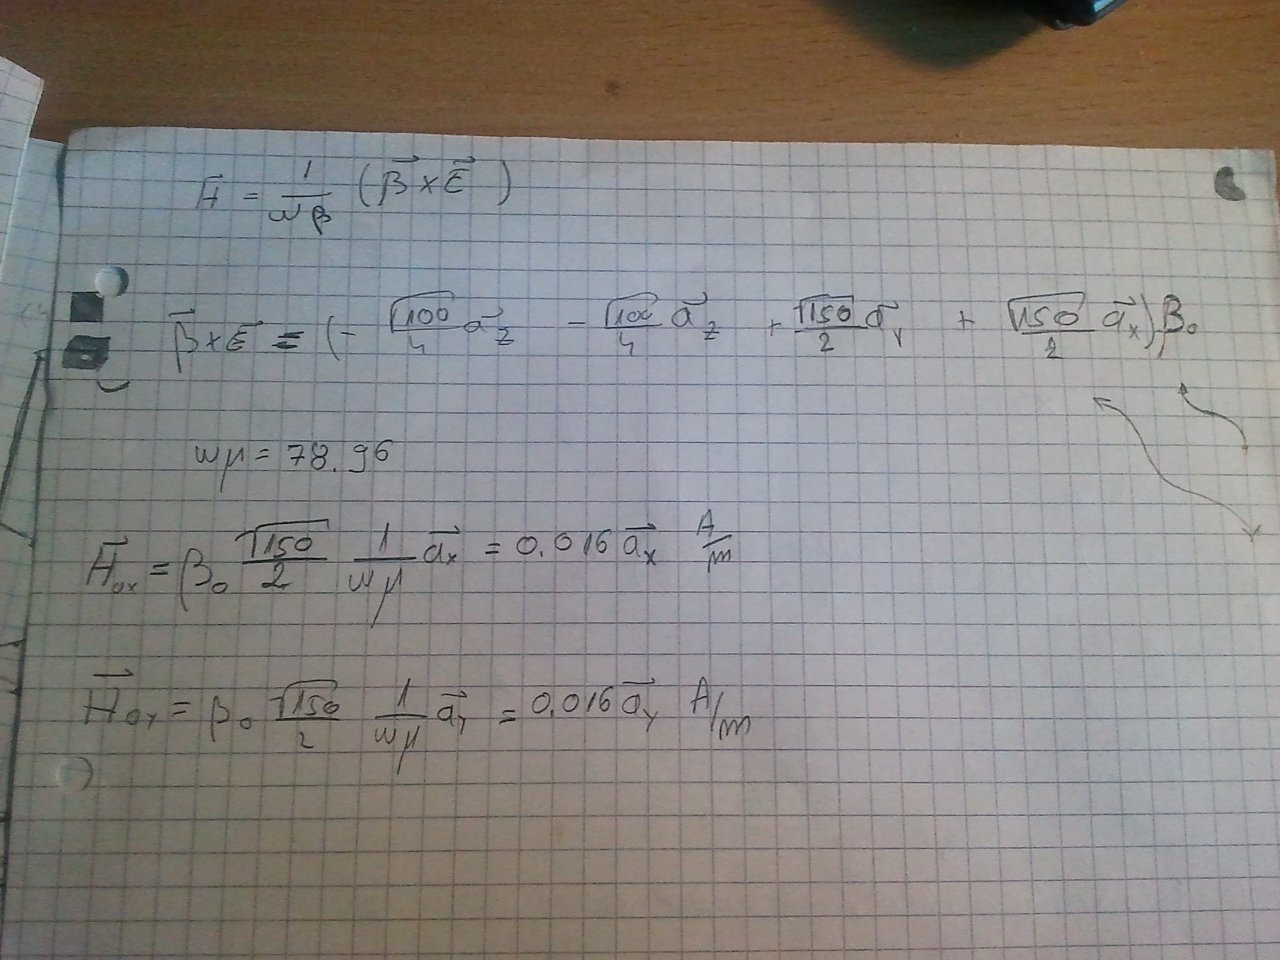 H⃗ = 1/ωβ (β⃗ × E⃗)
β⃗ × E⃗ = (- √100/4 a⃗z - √100/4 a⃗z + √150/2 a⃗y + √150/2 a⃗x) β₀
ωμ = 78.96
H⃗ox = β₀ √150/2 1/ωμ a⃗x = 0.016 a⃗x A/m
H⃗oy = β₀ √150/2 1/ωμ a⃗y = 0.016 a⃗y A/m